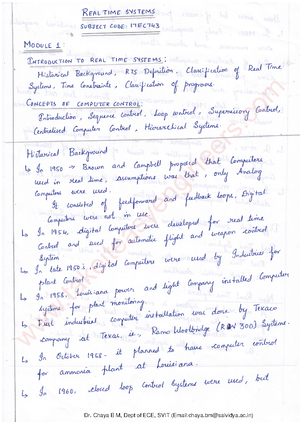 REAL TIME SYSTEMS
SUBJECT CODE: 17EC743
MODULE 1
INTRODUCTION TO REAL TIME SYSTEMS:
Historical Background, RTS Definition, Classification of Real Time
Systems, Time Constraints, Classification of programs.
CONCEPTS OF COMPUTER CONTROL:
Introduction, Sequence control, Loop control, Supervisory Control,
Centralised Computer Control, Hierarchical Systems.
Historical Background
In 1950 → Brown and Campbell proposed that Computers
used in real time, assumptions was that, only Analog
Computers were used.
It consisted of feedforward and feedback loops, Digital
Computers were not in use
In 1954, digital Computers were developed for real time
Control and used for automatic flight and weapon control
System
In late 1950's, digital Computers were used by Industries for
plant Control
In 1958, Louisiana power and light Company installed Computer
Systems for plant monitoring.
First industrial computer installation was done by Texaco
company at Texas, i.e., Ramo Wooldridge (RW 300) Systems.
In October 1958 - it planned to have computer control
for ammonia plant at Louisiana.
In 1960, closed loop Control Systems were used, but
Dr. Chaya B M, Dept of ECE, SVIT (Email:chaya.bm@saividya.ac.in)